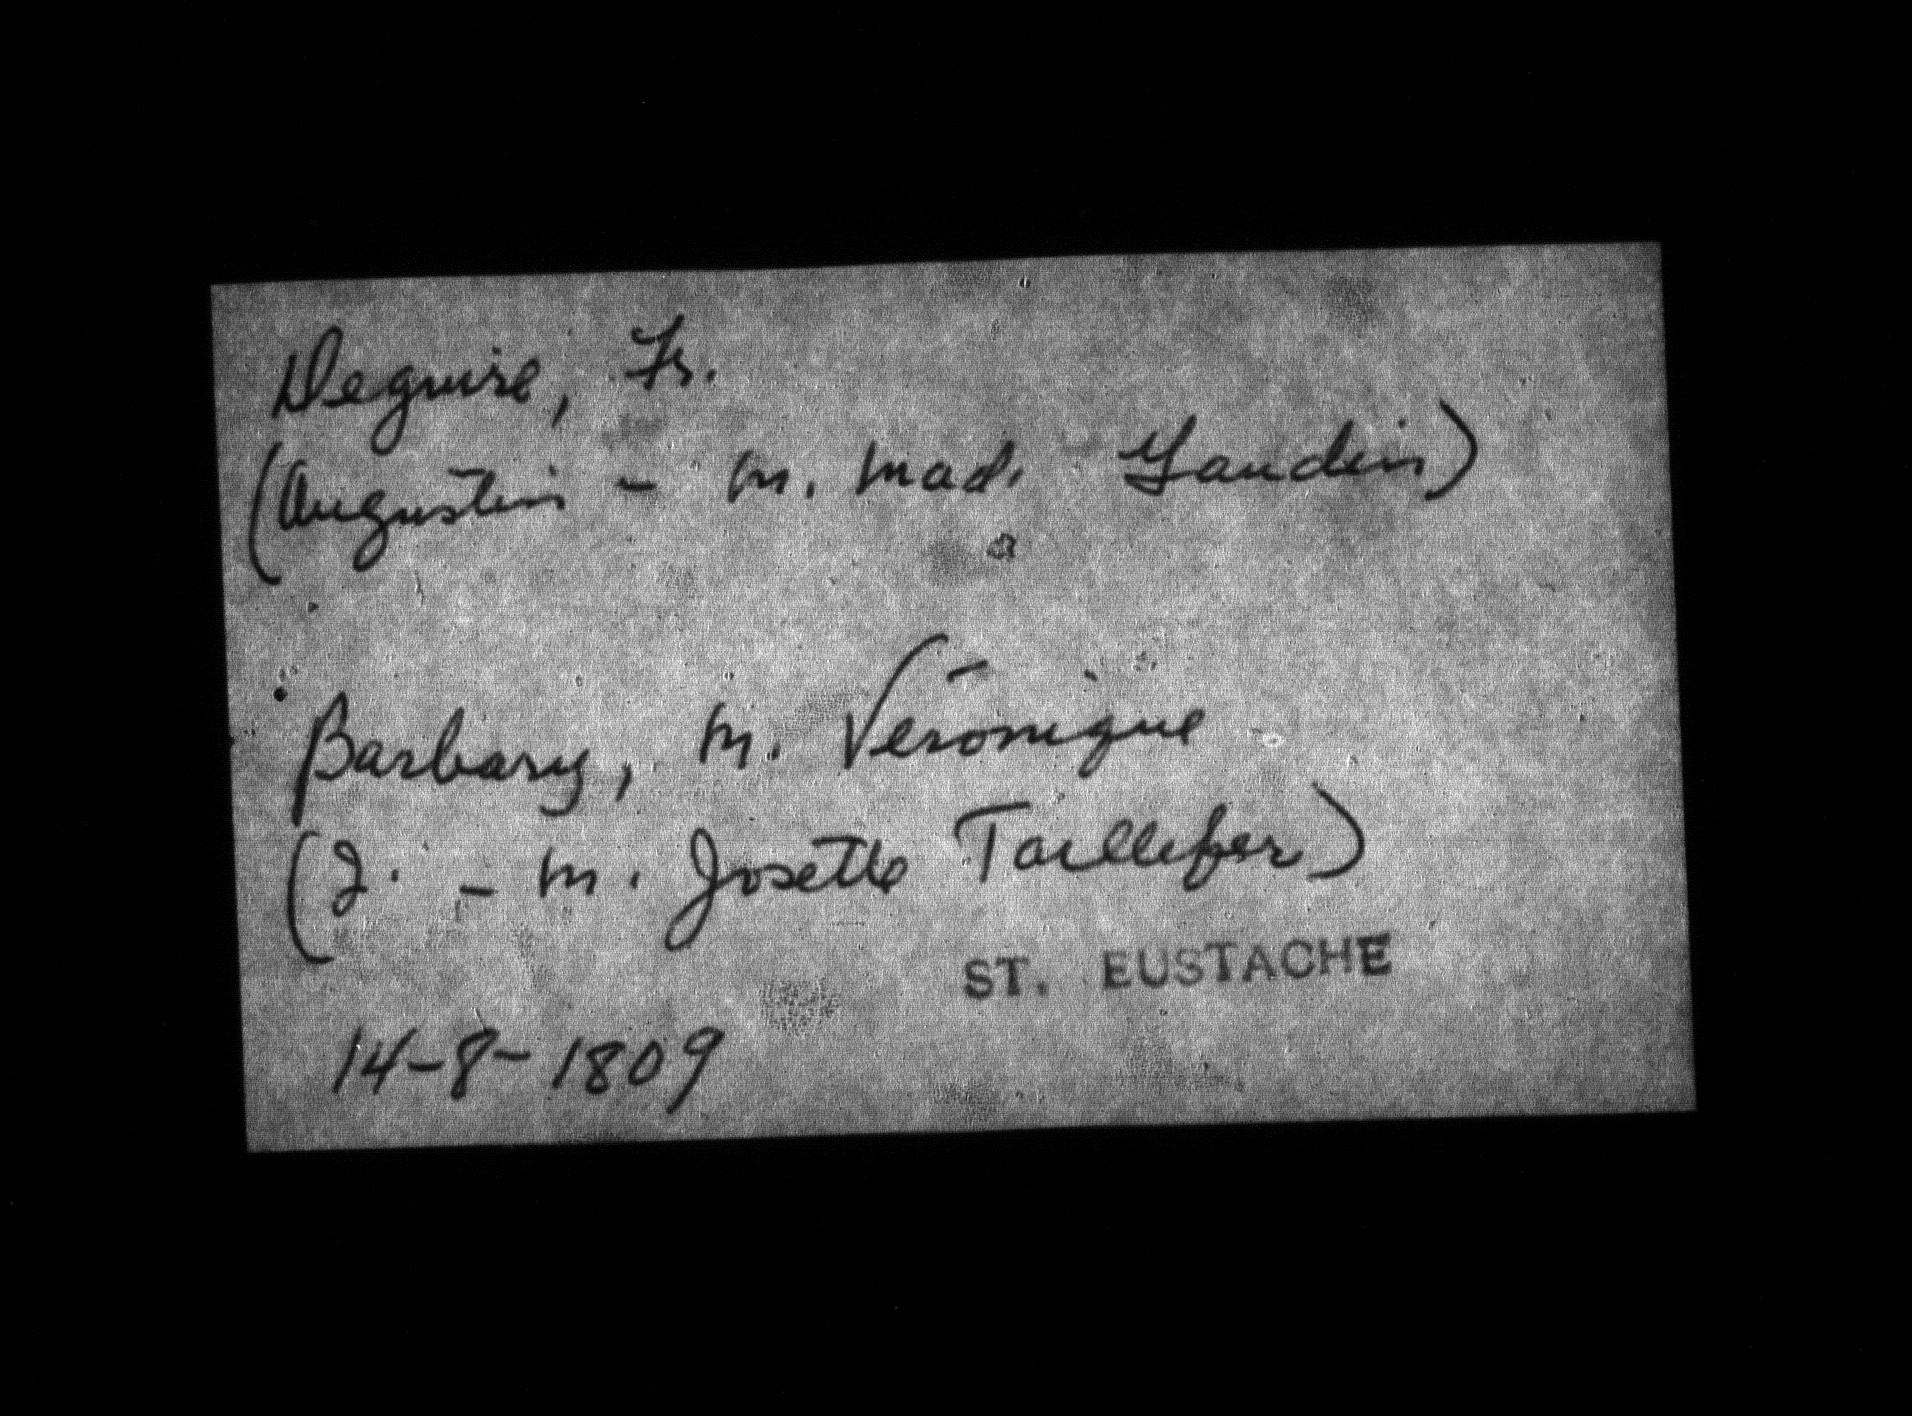 Deguire, Fr.
(Augustin - m. mad. Gaudin)
Barbary, m. Véronique
(J. - m. Josette Taillefer)
ST. EUSTACHE
14-8-1809